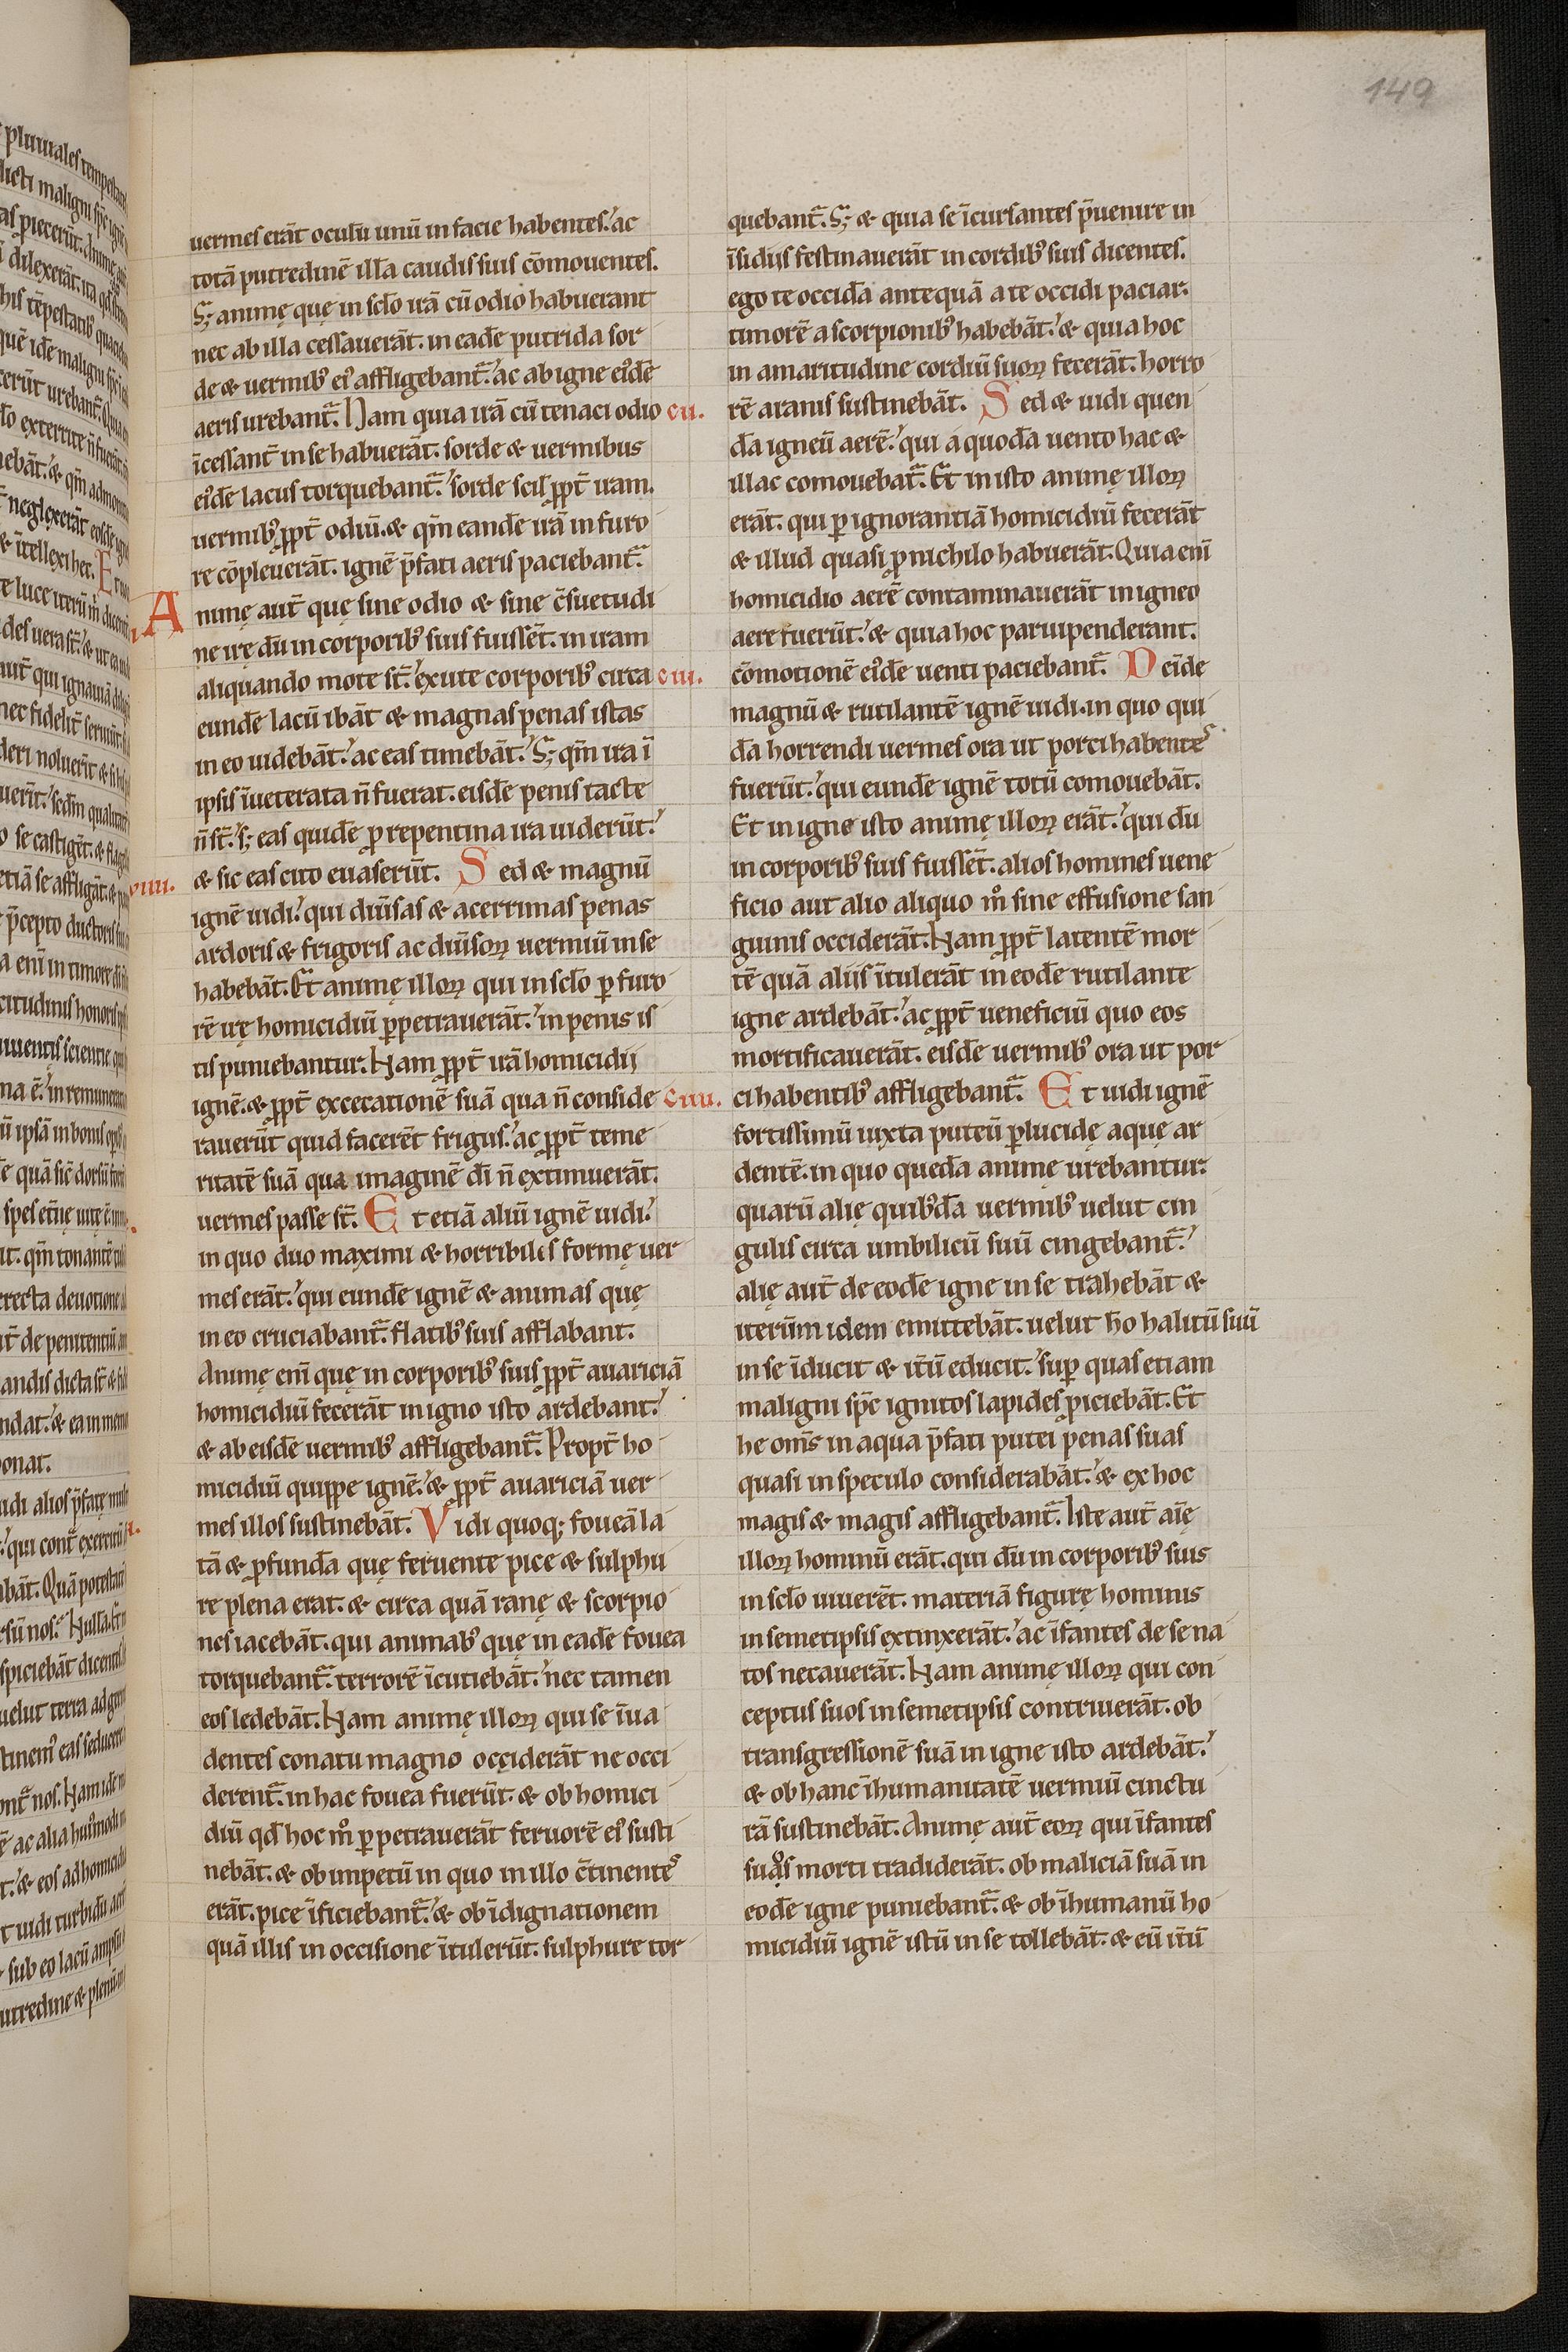 149
uermes erāt oculū unū in facie habentes. ac
totā putredinē illā caudis suis cōmouentes.
S; animę quę in sclo irā cū odio habuerant
nec ab illa cessauerāt. in eadē putrida sor
de & uermib' ei' affligebant̄. ac ab igne ei'dē
aeris urebant̄. Nam quia irā cū tenaci odio
īcessant̄ in se habuerāt. sorde & uermibus
ei'dē lacus torquebant̄. sorde scil ꝓpt̄ iram.
uermib' ꝓpt̄ odiū. & qm̄ eandē irā in furo
re cōpleuerāt. ignē p̄fati aeris paciebant̄.
A nimę aut̄ quę sine odio & sine c̄suetudi
ne irę dū in corporib' suis fuissēt. in iram
aliquando mote st̄. exute corporib' circa
eundē lacū ibāt & magnas penas istas
in eo uidebāt. ac eas timebāt. S; qm̄ ira ī
ipsis īueterata n̄ fuerat. eisdē penis tacte
n̄ st̄. s; eas quidē p̱ repentina ira uiderūt.
& sic eas cito euaserūt. S ed & magnū
ignē uidi. qui diūsas & acerrimas penas
ardoris & frigoris ac diūsoꝝ uermiū in se
habebāt. Et animę illoꝝ qui in sclo p̱ furo
rē irę homicidiū p̱petrauerāt. in penis is
tis puniebantur. Nam ꝓpt̄ irā homicidij
ignē. & ꝓpt̄ excecationē suā qua n̄ conside
rauerūt quid facerēt frigus. ac ꝓpt̄ teme
ritatē suā qua imaginē dī n̄ extimuerāt.
uermes passe st̄. E t etiā aliū ignē uidi.
in quo duo maximi & horribilis formę uer
mes erāt. qui eundē ignē & animas quę
in eo cruciabant̄. flatib' suis afflabant.
Animę enī quę in corporib' suis ꝓpt̄ auariciā
homicidiū fecerāt in igno isto ardebant.
& ab eisdē uermib' affligebant̄. Propt̄ ho
micidiū quippe ignē. & ꝓpt̄ auariciā uer
mes illos sustinebāt. V idi quoq; foueā la
tā & ꝓfundā quę feruente pice & sulphu
re plena erat. & circa quā ranę & scorpio
nes iacebāt. qui animab' quę in eadē fouea
torquebant̄. terrorē īcutiebāt. nec tamen
eos ledebāt. Nam animę illoꝝ qui se īua
dentes conatu magno occiderāt ne occi
derent̄. in hac fouea fuerūt. & ob homici
diū qd̄ hoc mº p̱petrauerāt feruorē ei' susti
nebāt. & ob impetū in quo in illo c̄tinentes
erāt. pice īficiebant̄. & ob īdignationem
quā illis in occisione ītulerūt. sulphure tor
quebant̄. S; & quia se īcursantes p̄uenire in
īsidiis festinauerāt in cordib' suis dicentes.
ego te occidā antequā a te occidi paciar.
timorē a scorpionib' habebāt. & quia hoc
in amaritudine cordiū suoꝝ fecerāt. horro
cii. rē a ranis sustinebāt. S ed & uidi quen
dā igneū aerē. qui a quodā uento hac &
illac comouebat̄. Et in isto animę illoꝝ
erāt. qui p̱ ignorantiā homicidiū fecerāt
& illud quasi ꝓ nichilo habuerāt. Quia enī
homicidio aerē contaminauerāt in igneo
aere fuerūt. & quia hoc paruipenderant.
ciii. cōmotionē ei'dē uenti paciebant̄. D eīde
magnū & rutilantē ignē uidi. in quo qui
dā horrendi uermes ora ut porci habentes
fuerūt. qui eundē ignē totū comouebāt.
Et in igne isto animę illoꝝ erāt. qui dū
in corporib' suis fuissēt. alios homines uene
ficio aut alio aliquo mº sine effusione san
guinis occiderāt. Nam ꝓpt̄ latentē mor
tē quā aliis ītulerāt in eodē rutilante
igne ardebāt. ac ꝓpt̄ ueneficiū quo eos
mortificauerāt. eisdē uermib' ora ut por
ciiii. ci habentib' affligebant̄. E t uidi ignē
fortissimū iuxta puteū p̱lucidę aquę ar
dentē. in quo quedā animę urebantur.
quarū alię quib'dā uermib' uelut cin
gulis circa umbilicū suū cingebant̄.
alię aut̄ de eodē igne in se trahebāt &
iterūm idem emittebāt. uelut ho̅ halitū suū
in se īducit & it̄ū educit. sup̱ quas etiam
maligni spc̄ ignitos lapides ꝓiciebāt. Et
he oms̄ in aqua p̄fati putei penas suas
quasi in speculo considerabāt. & ex hoc
magis & magis affligebant̄. Iste aut̄ aīę
illoꝝ hominū erāt. qui dū in corporib' suis
in sclo uiuerēt. materiā figurę hominis
in semetipsis extinxerāt. ac īfantes de se na
tos necauerāt. Nam animę illoꝝ qui con
ceptus suos in semetipsis contriuerāt. ob
transgressionē suā in igne isto ardebāt.
& ob hanc īhumanitatē uermiū cinctu
rā sustinebāt. Animę aut̄ eoꝝ qui īfantes
suos morti tradiderāt. ob maliciā suā in
eodē igne puniebant̄. & ob īhumanū ho
micidiū ignē istū in se tollebāt. & eū it̄ū